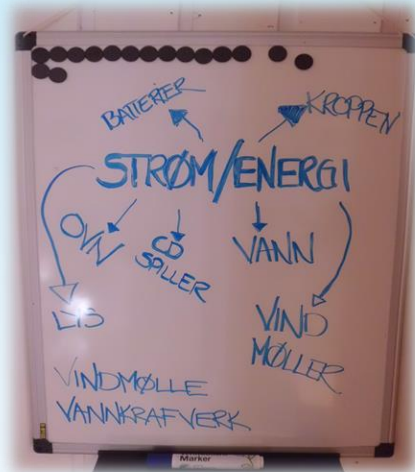 BATTERIER
KROPPEN
STRØM/ENERGI
OVN
CD
SPILLER
VANN
LYS
VIND
MØLLER
VINDMØLLE
VANNKRAFVERK
Marker